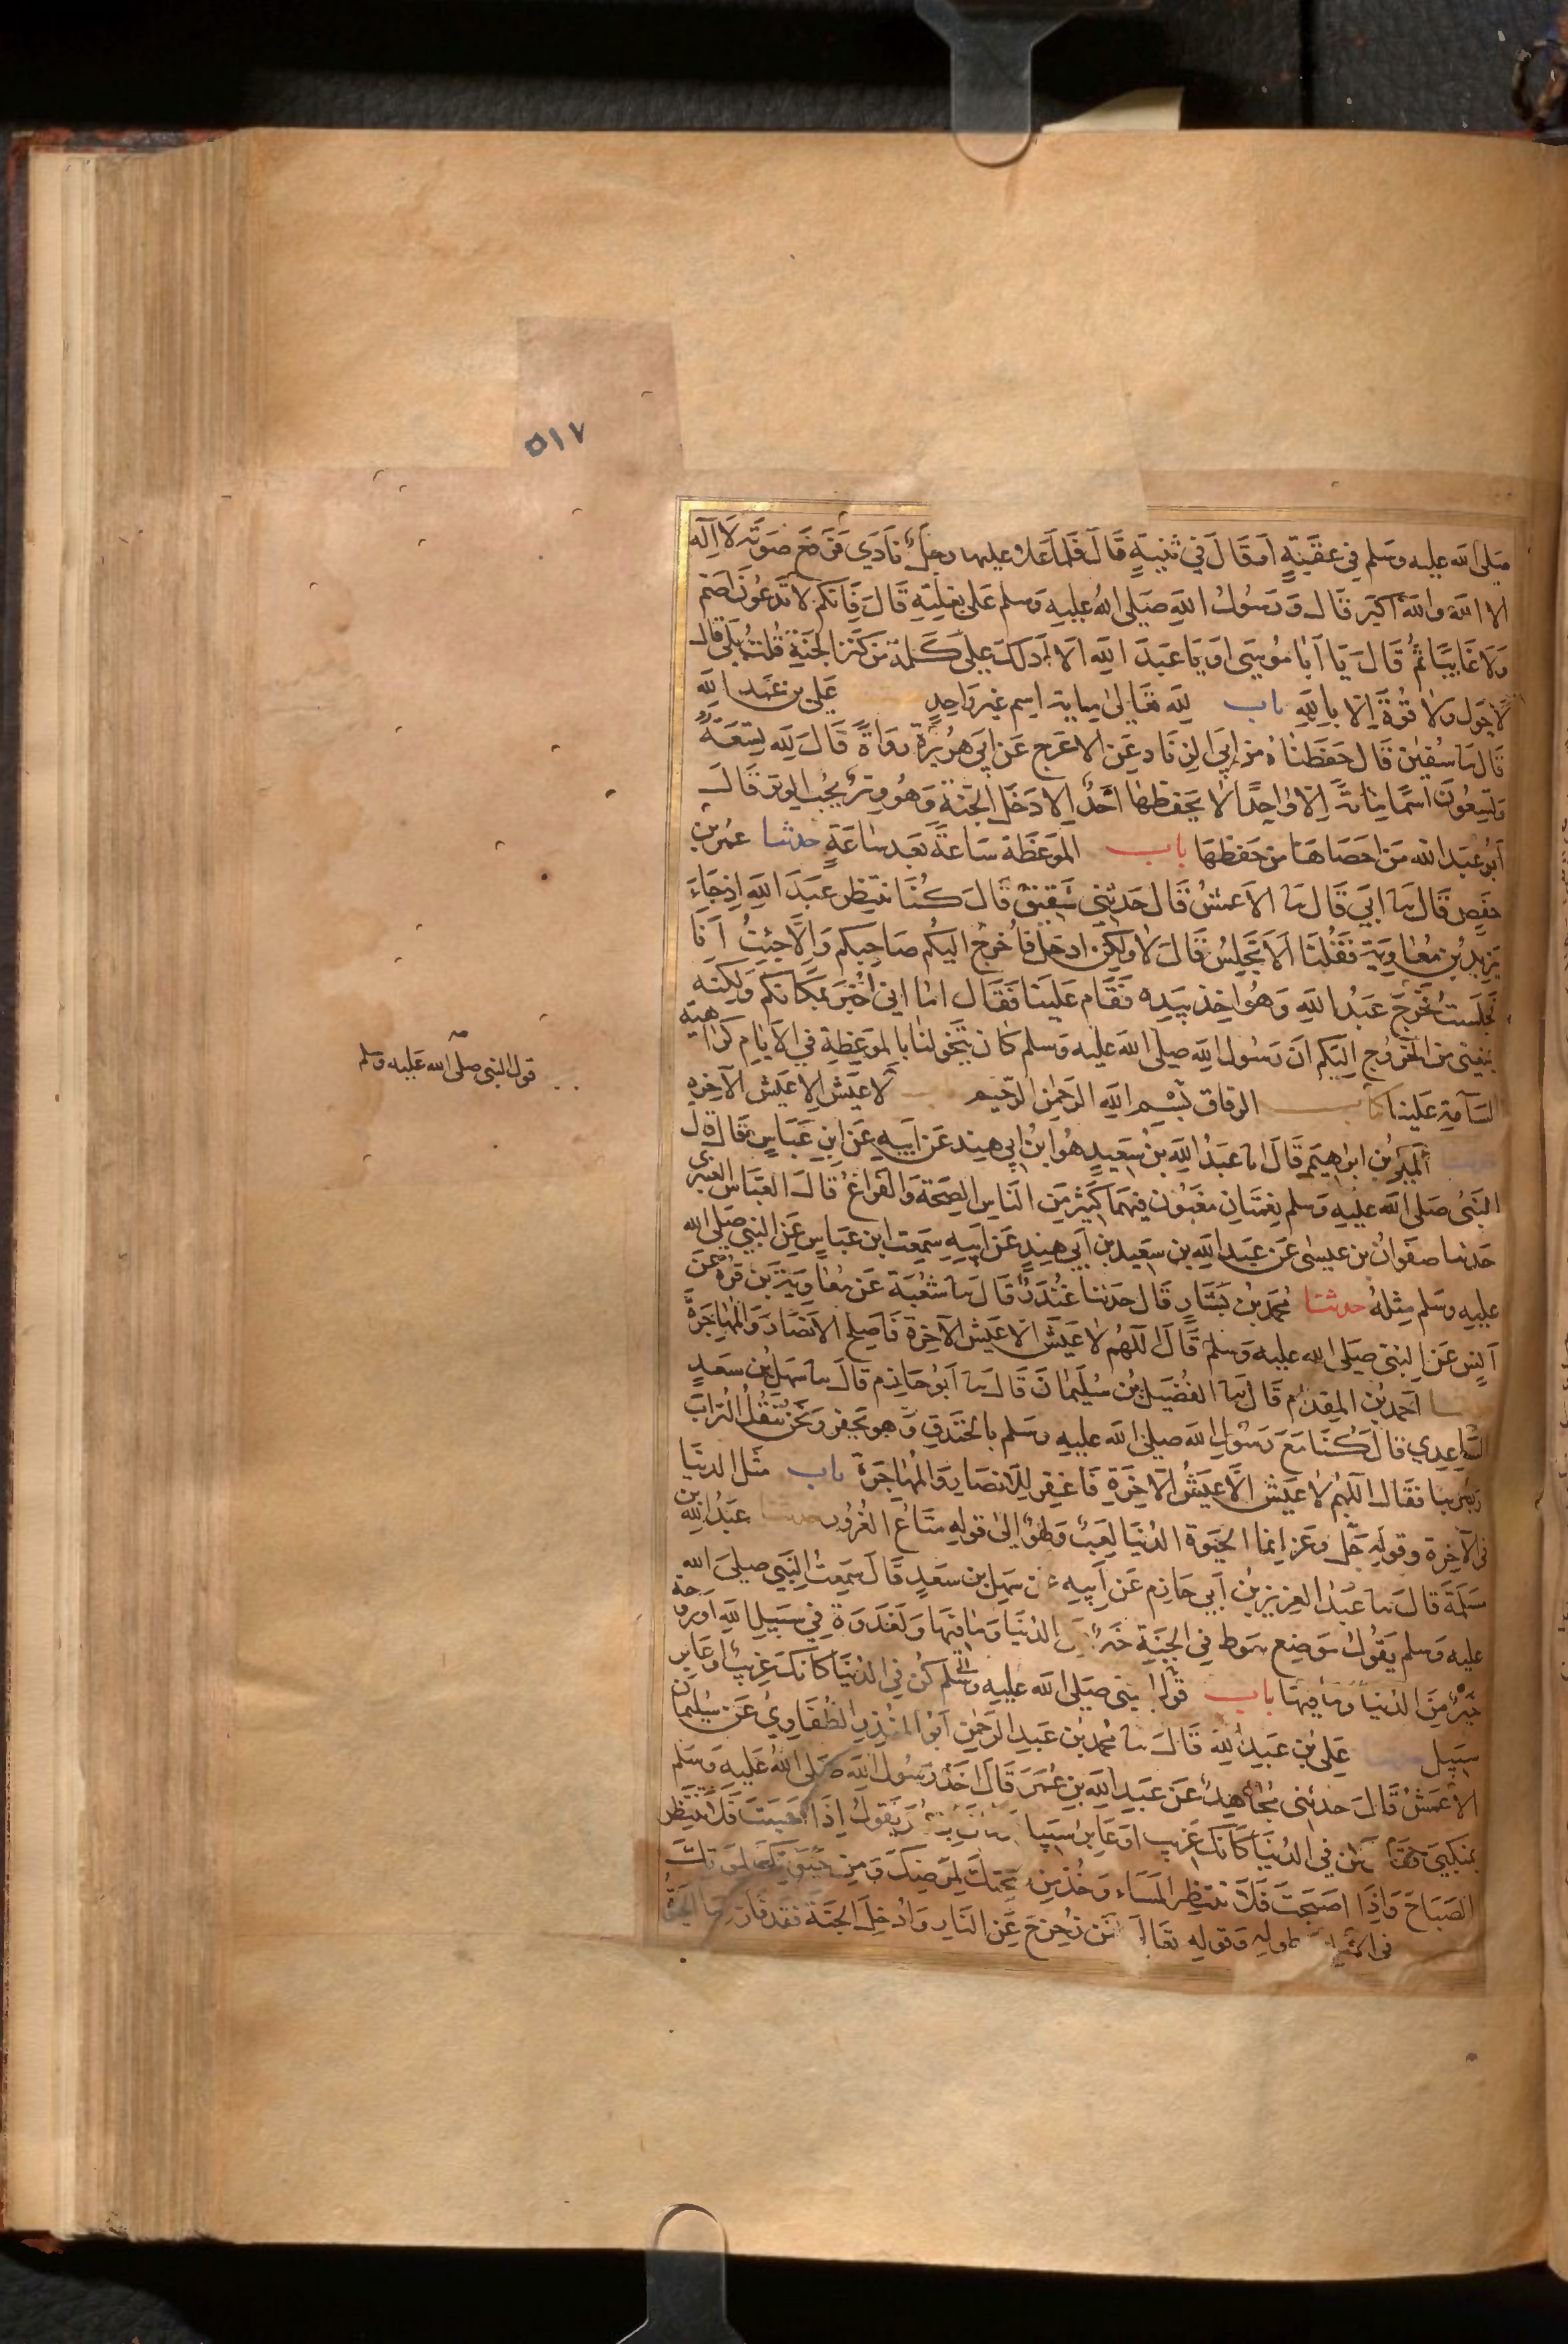 ٥١٧
صلى الله عليه وسلم في عقبة او قال في ثنية قال فلما علا عليها رجل نادى فرفع صوته لا اله
الا الله والله اكبر قال ورسول الله صلى الله عليه وسلم على بغلته قال فانكم لا تدعون اصم
ولا غايبا ثم قال يا ابا موسى او يا عبد الله الا ادلك على كلمة من كنز الجنة قلت بلى قال
لا حول ولا قوة الا بالله باب لله تعالى مايه اسم غير واحد علي بن عبد الله
قال سا سفين قال حفظناه من ابي الزناد عن الاعرج عن ابي هريرة رواة قال لله تسعة
وتسعون اسما ماية الا واحدا لا يحفظها احد الا دخل الجنة وهو وتر يحب الوتر قال
ابو عبد الله من احصاها من حفظها باب الموعظة ساعة بعد ساعة حدثنا عمر بن
حفص قال سا ابي قال سا الاعمش قال حدثني شقيق قال كنا ننتظر عبد الله اذ جاء
يزيد بن معاوية فقلنا الا تجلس قال لا ولكن ادخل فاخرج اليكم صاحبكم والا جئت انا
فجلست فخرج عبد الله وهو اخذ بيده فقام علينا فقال اما اني اخبر بمكانكم ولكنه
يمنعني من الخروج اليكم ان رسول الله صلى الله عليه وسلم كان يتخولنا بالموعظة في الايام كراهية
السآمة علينا كتاب الرقاق بسم الله الرحمن الرحيم لا عيش الا عيش الآخره
المكي بن ابراهيم قال انا عبد الله بن سعيد هو ابن ابي هند عن ابيه عن ابن عباس قال قال
النبي صلى الله عليه وسلم نعمتان مغبون فيهما كثير من الناس الصحة والفراغ قال العباس العنبري
حدثنا صفوان بن عيسى عن عبد الله بن سعيد بن ابي هند عن ابيه سمعت ابن عباس عن النبي صلى الله
عليه وسلم مثله حدثنا محمد بن بشار قال حدثنا غندر قال سا شعبة عن معاوية بن قرة عن
انس عن النبي صلى الله عليه وسلم قال اللهم لا عيش الا عيش الآخرة فاصلح الانصار والمهاجرة
احمد بن المقدام قال سا الفضيل بن سليمان قال سا ابو حازم قال سا سهل بن سعد
الساعدي قال كنا مع رسول الله صلى الله عليه وسلم بالخندق وهو يحفر ونحن ننقل التراب
ويمر بنا فقال اللهم لا عيش الا عيش الآخرة فاغفر للانصار والمهاجرة باب مثل الدنيا
في الآخرة وقوله جل وعز انما الحيوة الدنيا لعب ولهو الى قوله متاع الغرور حدثنا عبد الله بن
مسلمة قال سا عبد العزيز بن ابي حازم عن ابيه عن سهل بن سعد قال سمعت النبي صلى الله
عليه وسلم يقول موضع سوط في الجنة خير من الدنيا وما فيها ولغدوة في سبيل الله او روحة
خير من الدنيا وما فيها باب قول النبي صلى الله عليه وسلم كن في الدنيا كانك غريب او عابر
سبيل علي بن عبد الله قال سا محمد بن عبد الرحمن ابو المنذر الطفاوي عن سليمان
الاعمش قال حدثني مجاهد عن عبد الله بن عمر قال اخذ رسول الله صلى الله عليه وسلم
بمنكبي فقال كن في الدنيا كانك غريب او عابر سبيل يقول اذا امسيت فلا تنتظر
الصباح واذا اصبحت فلا تنتظر المساء وخذ من صحتك لمرضك ومن حيوتك لموتك
في الامل وطوله وقوله تعالى فمن زحزح عن النار وادخل الجنة فقد فاز
قول النبي صلى الله عليه وسلم